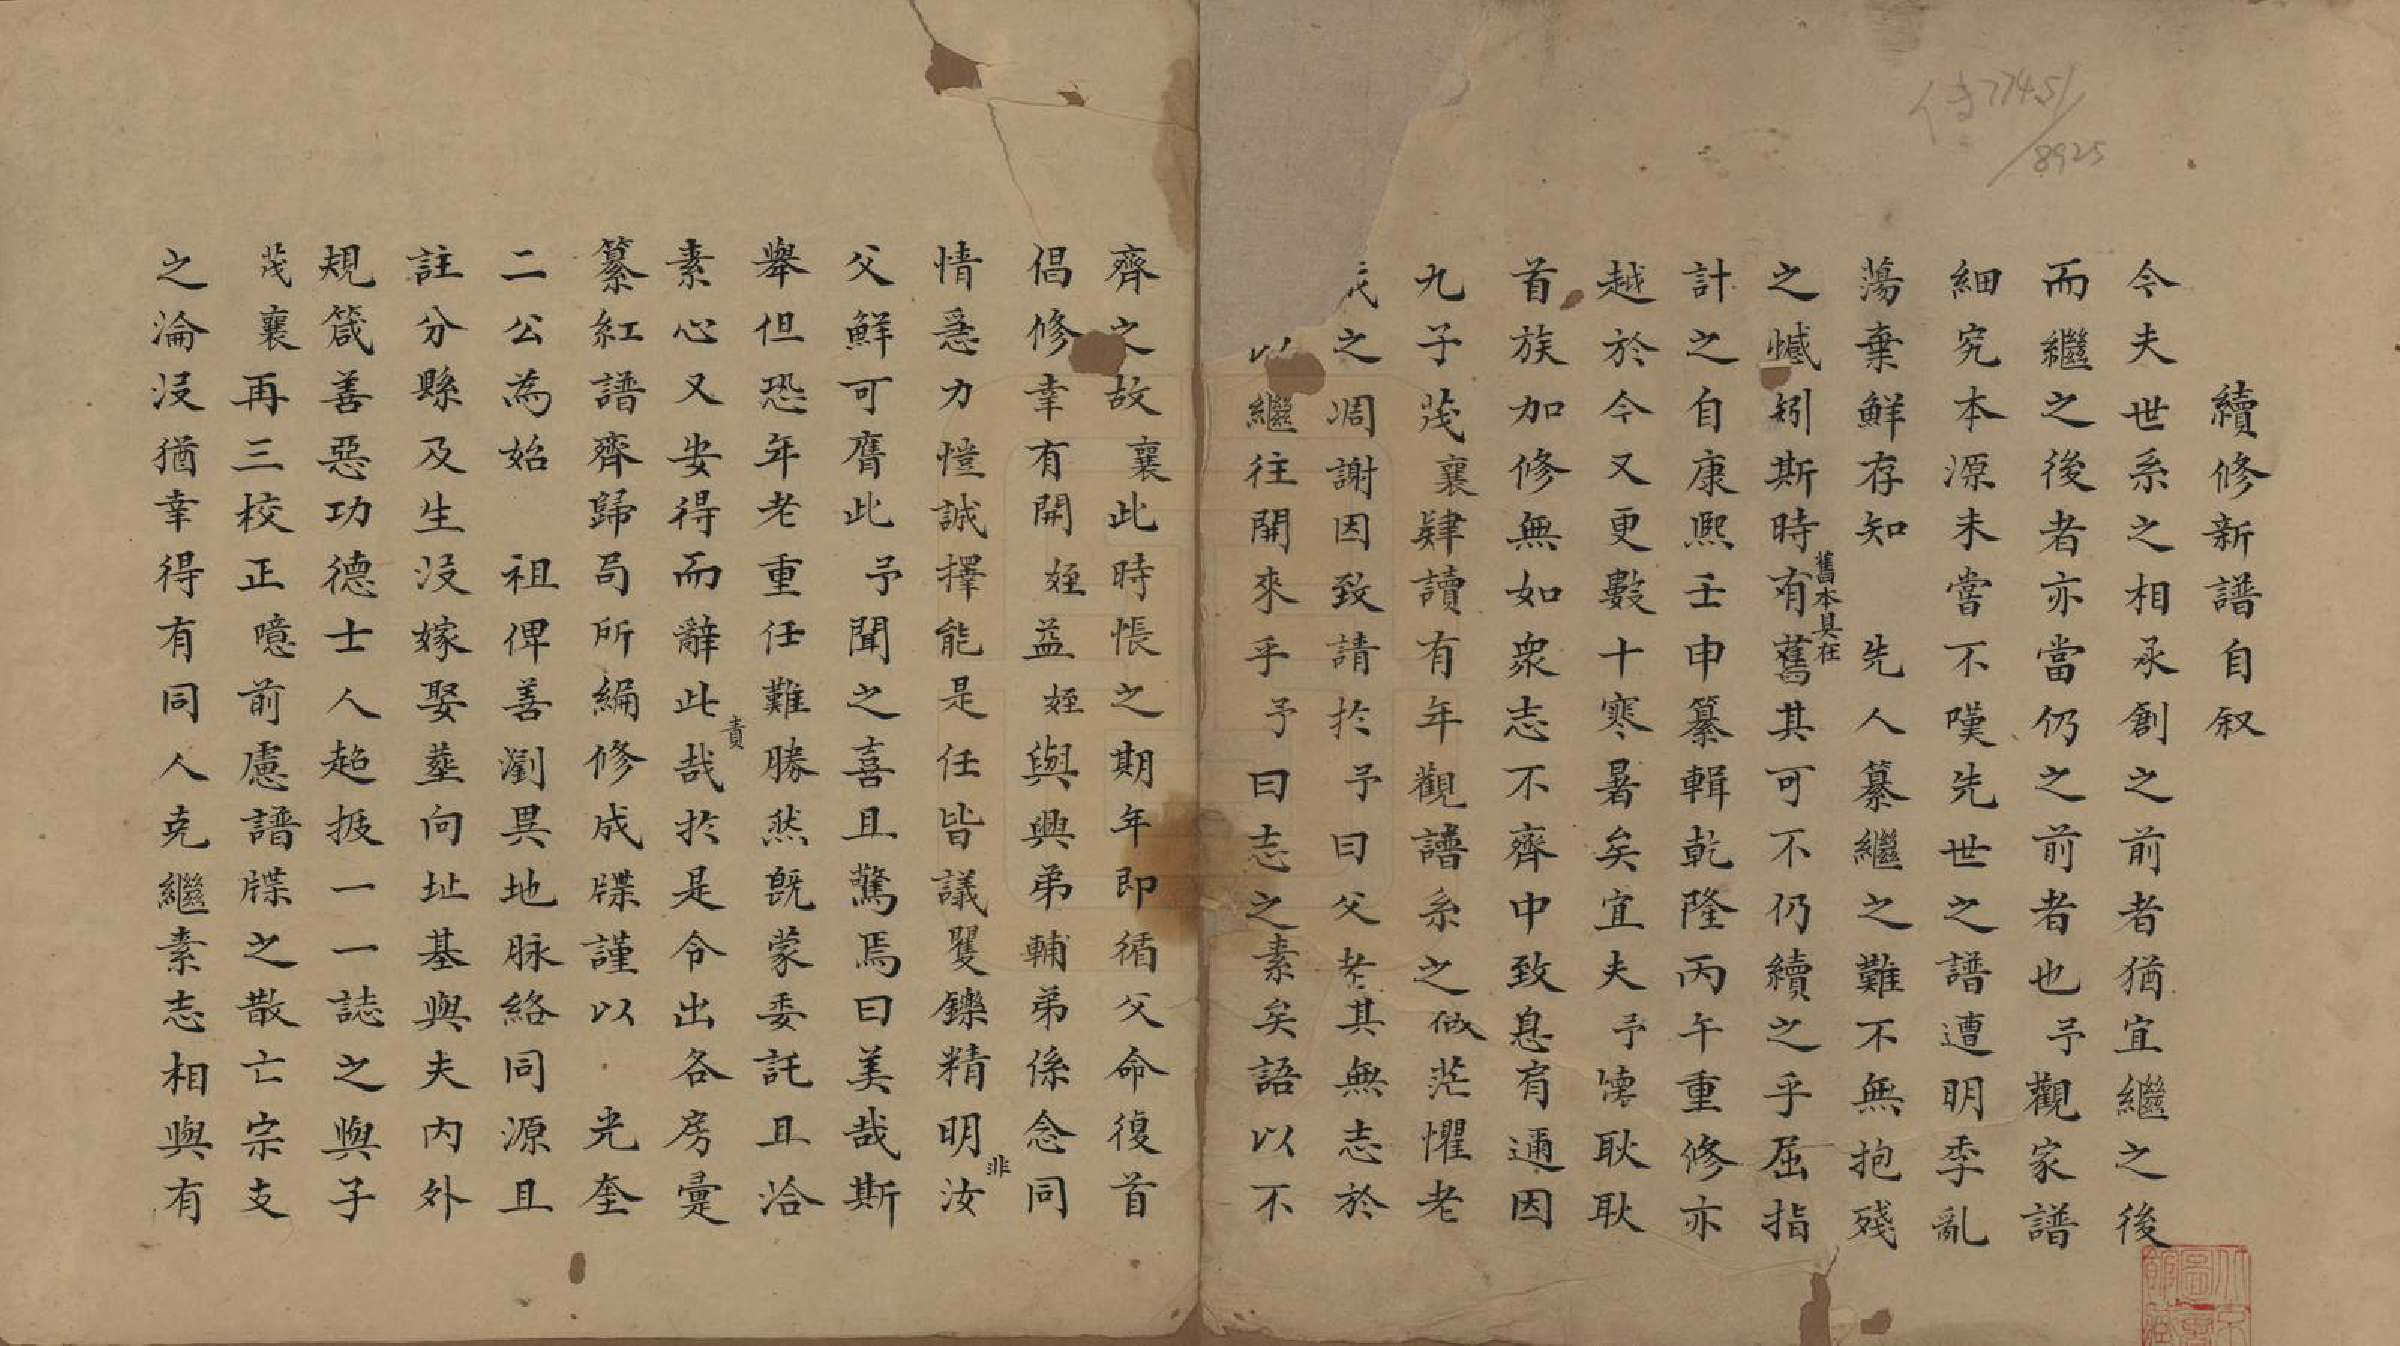 續修新譜自叙
今夫世系之相承創之前者猶宜繼之後
而繼之後者亦當仍之前者也予觀家譜
細究本源未嘗不嘆先世之譜遭明季亂
蕩棄鮮存知 先人纂繼之難不無抱殘
之憾矧斯時有舊其可不仍續之乎屈指
舊本具在
計之自康熙壬申纂輯乾隆丙午重修亦
越於今又更數十寒暑矣宜夫予懷耿耿
首族加修無如眾志不齊中致息肩適因
九子茂襄肄讀有年觀譜系之微茫懼老
之凋謝因致請於予曰父老其無志於
以繼往開來乎予曰志之素矣語以不
齊之故襄此時悵之期年即循父命復首
倡修幸有開姪益姪與興弟輔弟係念同
情急力愷誠擇能是任皆議矍鑠精明汝
非
父鮮可膺此予聞之喜且驚焉曰美哉斯
舉但恐年老重任難勝然既蒙委託且洽
素心又安得而辭此哉於是令出各房彙
責
纂紅譜齊歸局所編修成牒謹以 光奎
二公為始 祖俾善瀏異地脉絡同源且
註分縣及生没嫁娶塟向址基與夫內外
規箴善惡功德士人超拔一一誌之與子
茂襄再三校正噫前慮譜牒之散亡宗支
之淪没猶幸得有同人克繼素志相與有
侍77451/8925